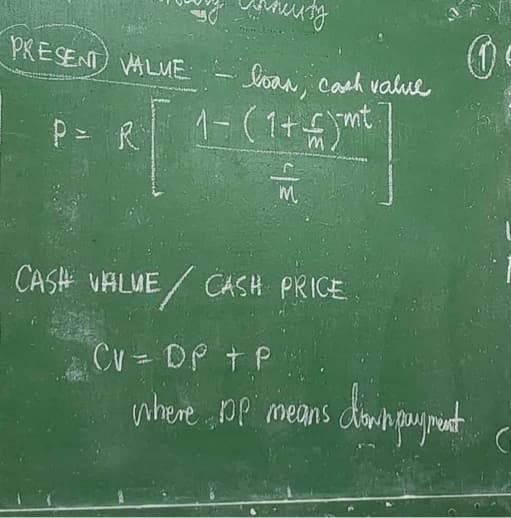 Annuity
PRESENT VALUE - loan, cash value
P = R [ 1 - (1 + r/m)^-mt / r/m ]
CASH VALUE / CASH PRICE
CV = DP + P
where DP means downpayment
1